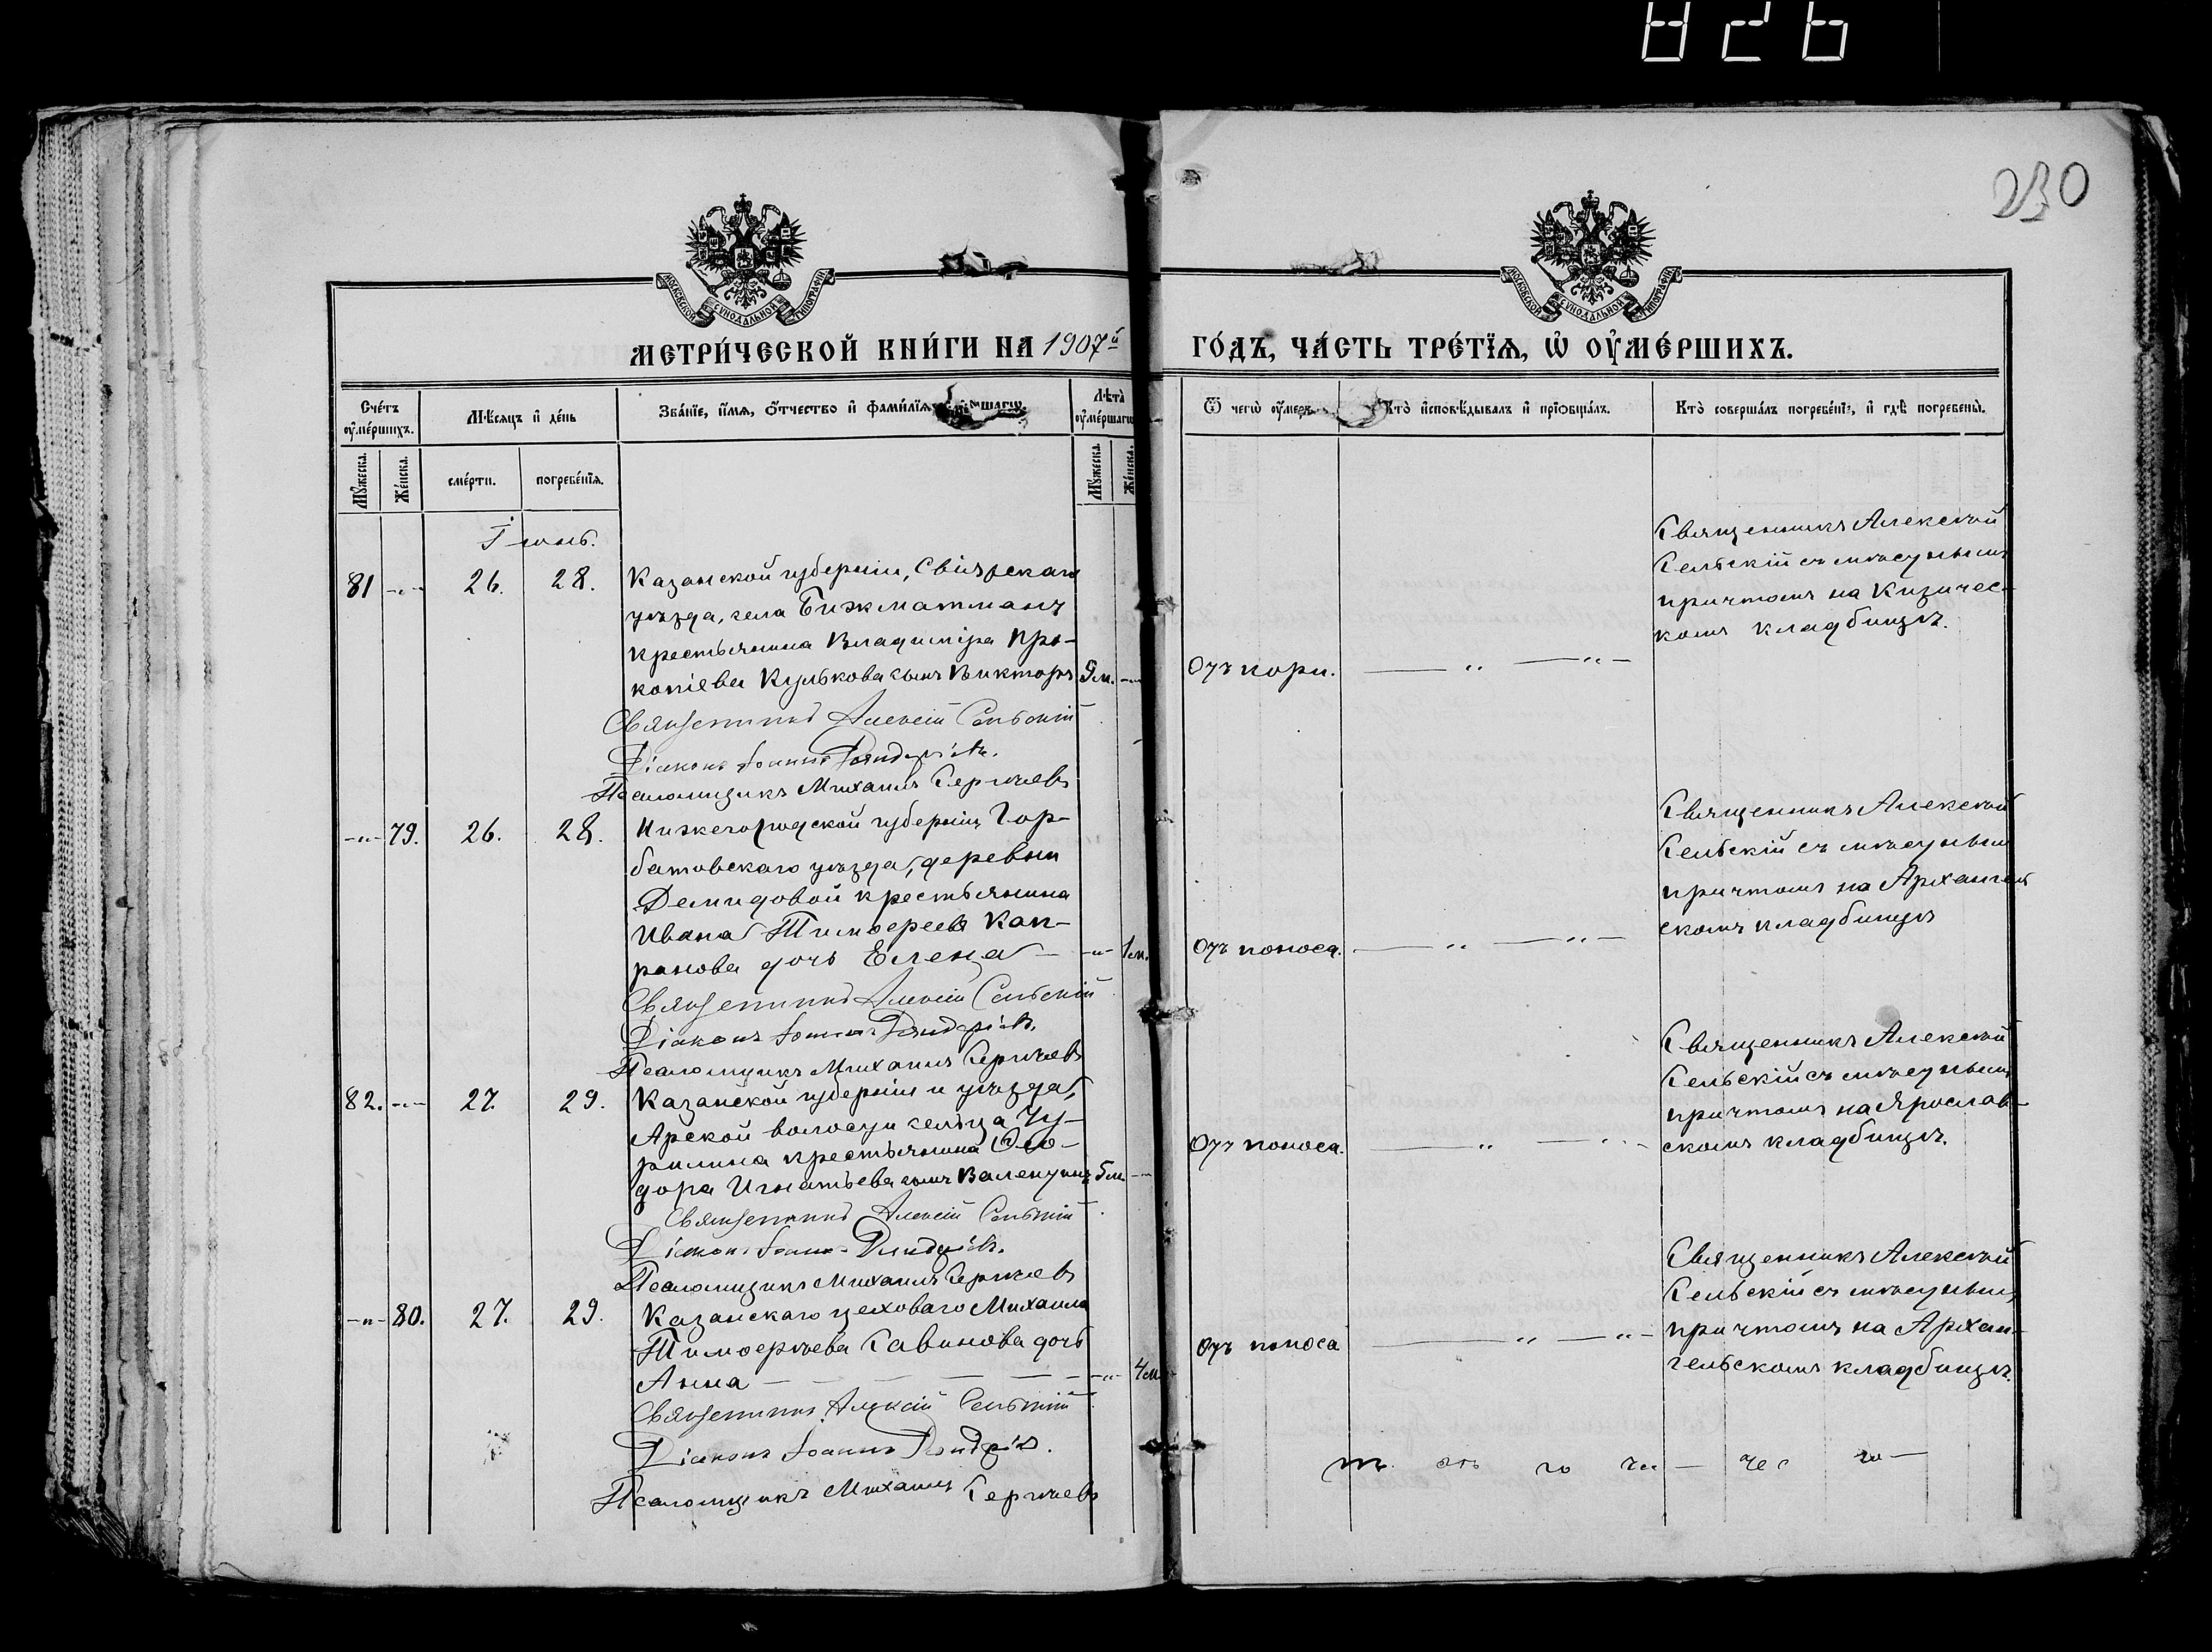 826
230
МОСКОВСКОЙ СУНОДАЛЬНОЙ ТИПОГРАФІИ
МОСКОВСКОЙ СУНОДАЛЬНОЙ ТИПОГРАФІИ
МЕТРИ́ЧЕСКОЙ КНИ́ГИ НА 1907й ГО́ДЪ, ЧА́СТЬ ТРЕ́ТІѦ, Ѡ҆ ОУ҆МЕ́РШИХЪ.
Сче́тъ оу҆ме́ршихъ.
Мѣ́сяцъ и҆ де́нь
Зва́нїе, и҆́мѧ, ѻ҆́тчество и҆ фами́лїѧ
Лѣ́та̀ оу҆ме́ршагѡ
Ѿ чегѡ̀ оу҆́меръ.
Кто̀ и҆сповѣ́дывалъ и҆ прїѡбща́лъ.
Кто̀ соверша́лъ погребе́нїе, и҆ гдѣ̀ погребены̀.
Му́жеска.
Же́нска.
сме́рти.
погребе́нїѧ.
Му́жеска.
Же́нска.
Іюнь.
81 -"- 26. 28. Казанской губерніи, Свіяжскаго
уѣзда, села Бижматманъ
крестьянина Владиміра Про-
копіева Кулькова сынъ Викторъ 9 м. -"-
Отъ кори. — " — " —
Священникъ Алексѣй
Сельскій съ мѣстнымъ
причтомъ на Кизичес-
комъ кладбищѣ.
Священникъ Алексій Сельскій
Діаконъ Іоаннъ
Псаломщикъ Михаилъ Сергѣевъ
-"- 79. 26. 28. Нижегородской губерніи, Гор-
батовскаго уѣзда, деревни
Демидовой крестьянина
Ивана Тимоѳеева Кап-
ранова дочь Елена — -"- 1 м.
Отъ поноса. — " — " —
Священникъ Алексѣй
Сельскій съ мѣстнымъ
причтомъ на Архангель
скомъ кладбищѣ
Священникъ Алексій Сельскій
Діаконъ Іоаннъ
Псаломщикъ Михаилъ Сергѣевъ
82. -"- 27. 29. Казанской губерніи и уѣзда,
Арской волости сельца Чу-
рилина крестьянина Ѳео-
дора Игнатьева сынъ Валентинъ 5 м. -"-
Отъ поноса. — " — " —
Священникъ Алексѣй
Сельскій съ мѣстнымъ
причтомъ на Ярослав-
скомъ кладбищѣ.
Священникъ Алексій Сельскій
Діаконъ Іоаннъ
Псаломщикъ Михаилъ Сергѣевъ
-"- 80. 27. 29. Казанскаго цеховаго Михаила
Тимоѳеева Савинова дочь
Анна — — — — — -"- 4 м.
Отъ поноса — " — " —
Священникъ Алексѣй
Сельскій съ мѣстнымъ
причтомъ на Архан-
гельскомъ кладбищѣ.
Священникъ Алексій Сельскій
Діаконъ Іоаннъ
Псаломщикъ Михаилъ Сергѣевъ